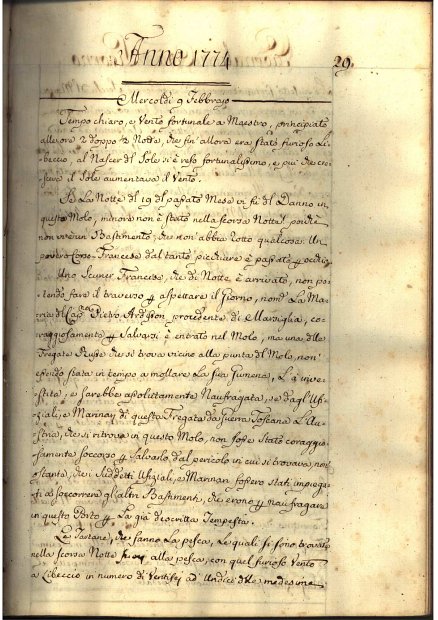 Anno 1774
29.
Mercoldi 9 Febbrajo
Tempo chiaro, e Vento fortunale a Maestro, principiato
alle ore 2 doppo Notte, che fin'allora era stato furioso Li-
beccio, al Nascer del Sole si è reso fortunalissimo, e più che cre-
sceva il Sole aumentava il Vento.
Se La Notte del 19 del passato Mese vi fu del Danno in
questo Molo, minore non è stato nella scorsa Notte, poiche
non vi è un Bastimento, che non abbia rotto qualcosa. Un
povero Corso-Francese dal tanto
Uno Scuner Francese, che di Notte è arrivato, non po-
tendo fare il traverso aspettare il Giorno, La Ma-
ria del Cap. Pietro procedente di Marsiglia, co-
raggiosamente Salvarsi è entrato nel Molo, ma una delle
Fregate Russe che si trova vicino alla punta del Molo, non
essendo stata in tempo a mollare La sua Gumena, L'à inve-
stito, e sarebbe assolutamente Naufragato, se dagl'Uf-
ziali, e Marinari di questa Fregata da Guerra Toscana L'Etu-
ria, che si ritrova in questo Molo, non fosse stato coraggio-
samente soccorso Salvarlo dal pericolo in cui si trovava, non
ostante, che i suddetti Ufiziali, e Marinari fossero stati impiega-
ti a soccorrere gl'altri Bastimenti, che erono naufragare
in questo Porto La già descritta Tempesta.
Le Tartane, che fanno La pesca, Le quali si sono trovate
nella scorsa Notte alla pesca, con quel furioso Vento
a Libeccio in numero di Ventisei ad Undici delle medesime